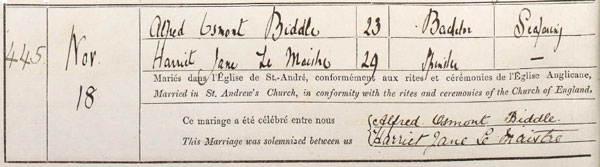 Alfred Osmont Biddle 23 Bachelor Seafaring
445 Nov. 18 Harriet Jane Le Maistre 29 Spinster —
Mariés dans l'Église de St.-André, conformément aux rites et cérémonies de l'Église Anglicane,
Married in St. Andrew's Church, in conformity with the rites and ceremonies of the Church of England.
Ce mariage a été célébré entre nous Alfred Osmont Biddle
This Marriage was solemnized between us Harriet Jane Le Maistre